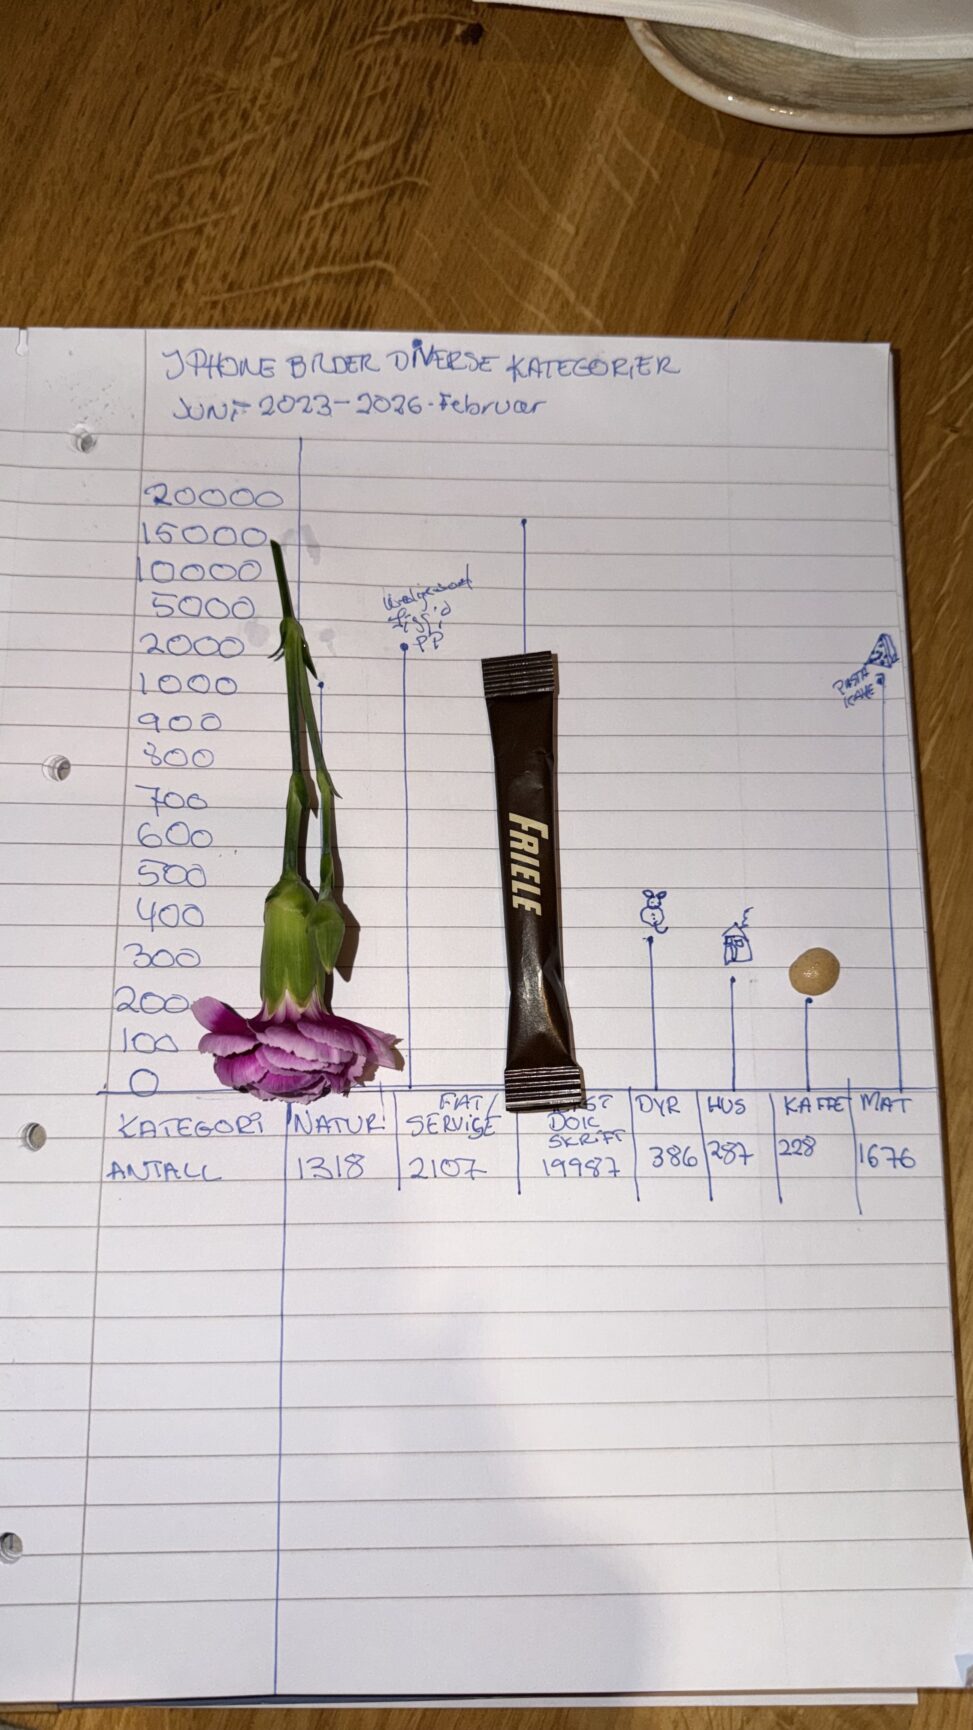 IPHONE BILDER DIVERSE KATEGORIER
JUNI-2023-2026-Februar
20000
15000
10000
5000
2000
1000
900
800
700
600
500
400
300
200
100
0
PP
FRIELE
PASTA
KAKE
KATEGORI NATUR FAT/ SERVISE DOK SKRIFT DYR HUS KAFFE MAT
ANTALL 1318 2107 19987 386 287 228 1676